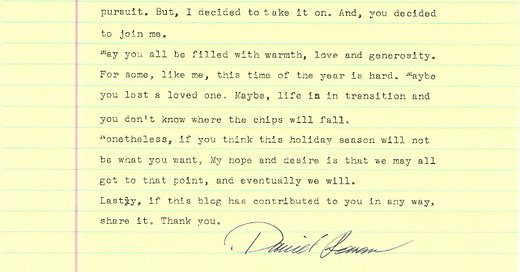 pursuit. But, I decided to take it on. And, you decided
to join me.
May you all be filled with warmth, love and generosity.
For some, like me, this time of the year is hard. Maybe
you lost a loved one. Maybe, life is in transition and
you don't know where the chips will fall.
Nonetheless, if you think this holiday season will not
be what you want, My hope and desire is that we may all
get to that point, and eventually we will.
Lastly, if this blog has contributed to you in any way,
share it. Thank you.
Daniel